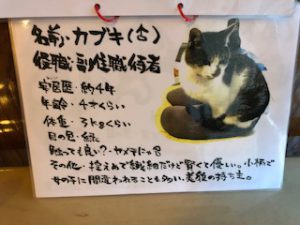 名前・カブキ(♂)
役職・副住職侍者
安区歴・約4年
年齢・4才くらい
体重・3kgくらい
目の色・緑
触っても良い?・ヤメテにゃ
その他・控えめで繊細だけど賢くて優しい。小柄で
女の子に間違われることも多い、美貌の持ち主。